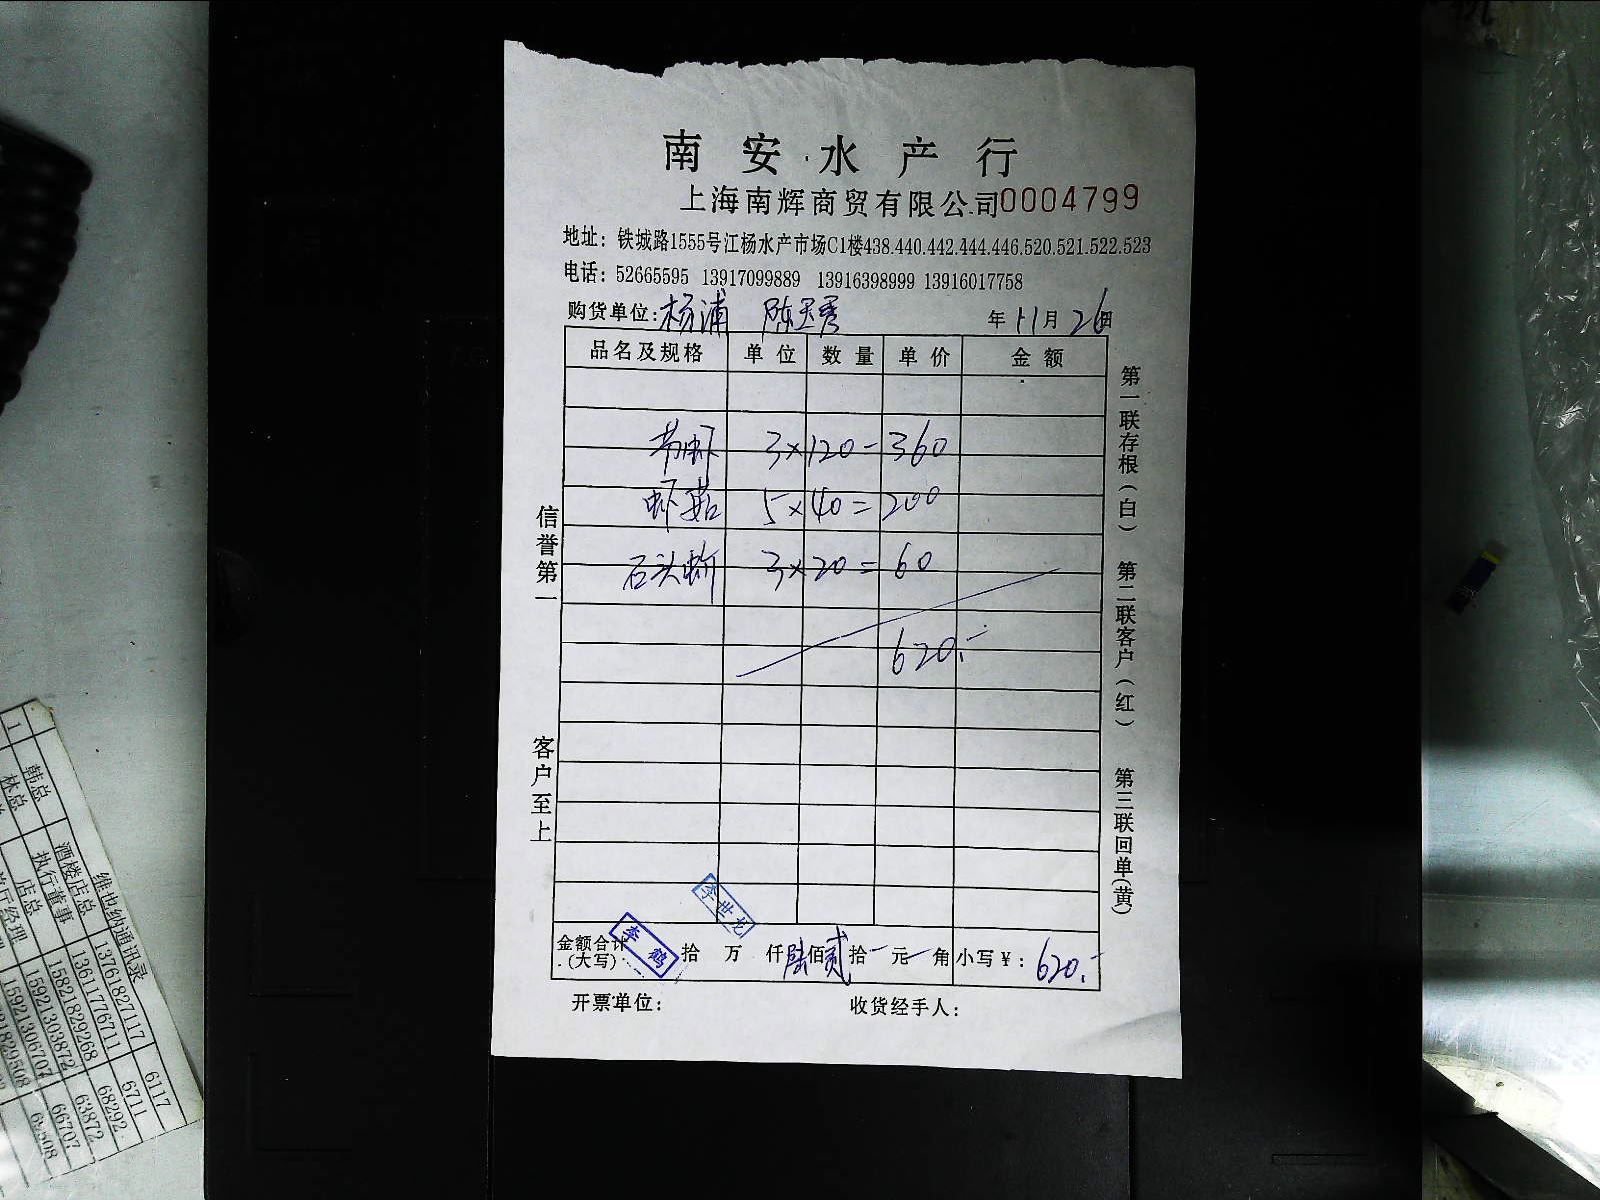 南安水产行
上海南辉商贸有限公司0004799
地址：铁城路1555号江杨水产市场C1楼438.440.442.444.446.520.521.522.523
电话：52665595 13917099889 13916398999 13916017758
购货单位：杨浦 年11月26日
品名及规格 单位 数量 单价 金额
3×120=360
虾菇 5×40=200
石头 3×20=60
620.-
信誉第一
客户至上
第一联存根（白） 第二联客户（红） 第三联回单（黄）
李世龙
李鹤
金额合计（大写） 拾 万 仟陆佰贰拾 元 角 小写￥：620.-
开票单位： 收货经手人：
维也纳通讯录
1 韩总 酒楼店总 13761827117 6117
林总 执行董事 13611776711 6711
店总 15821829268 68292
15921303872 63872
15921306707 66707